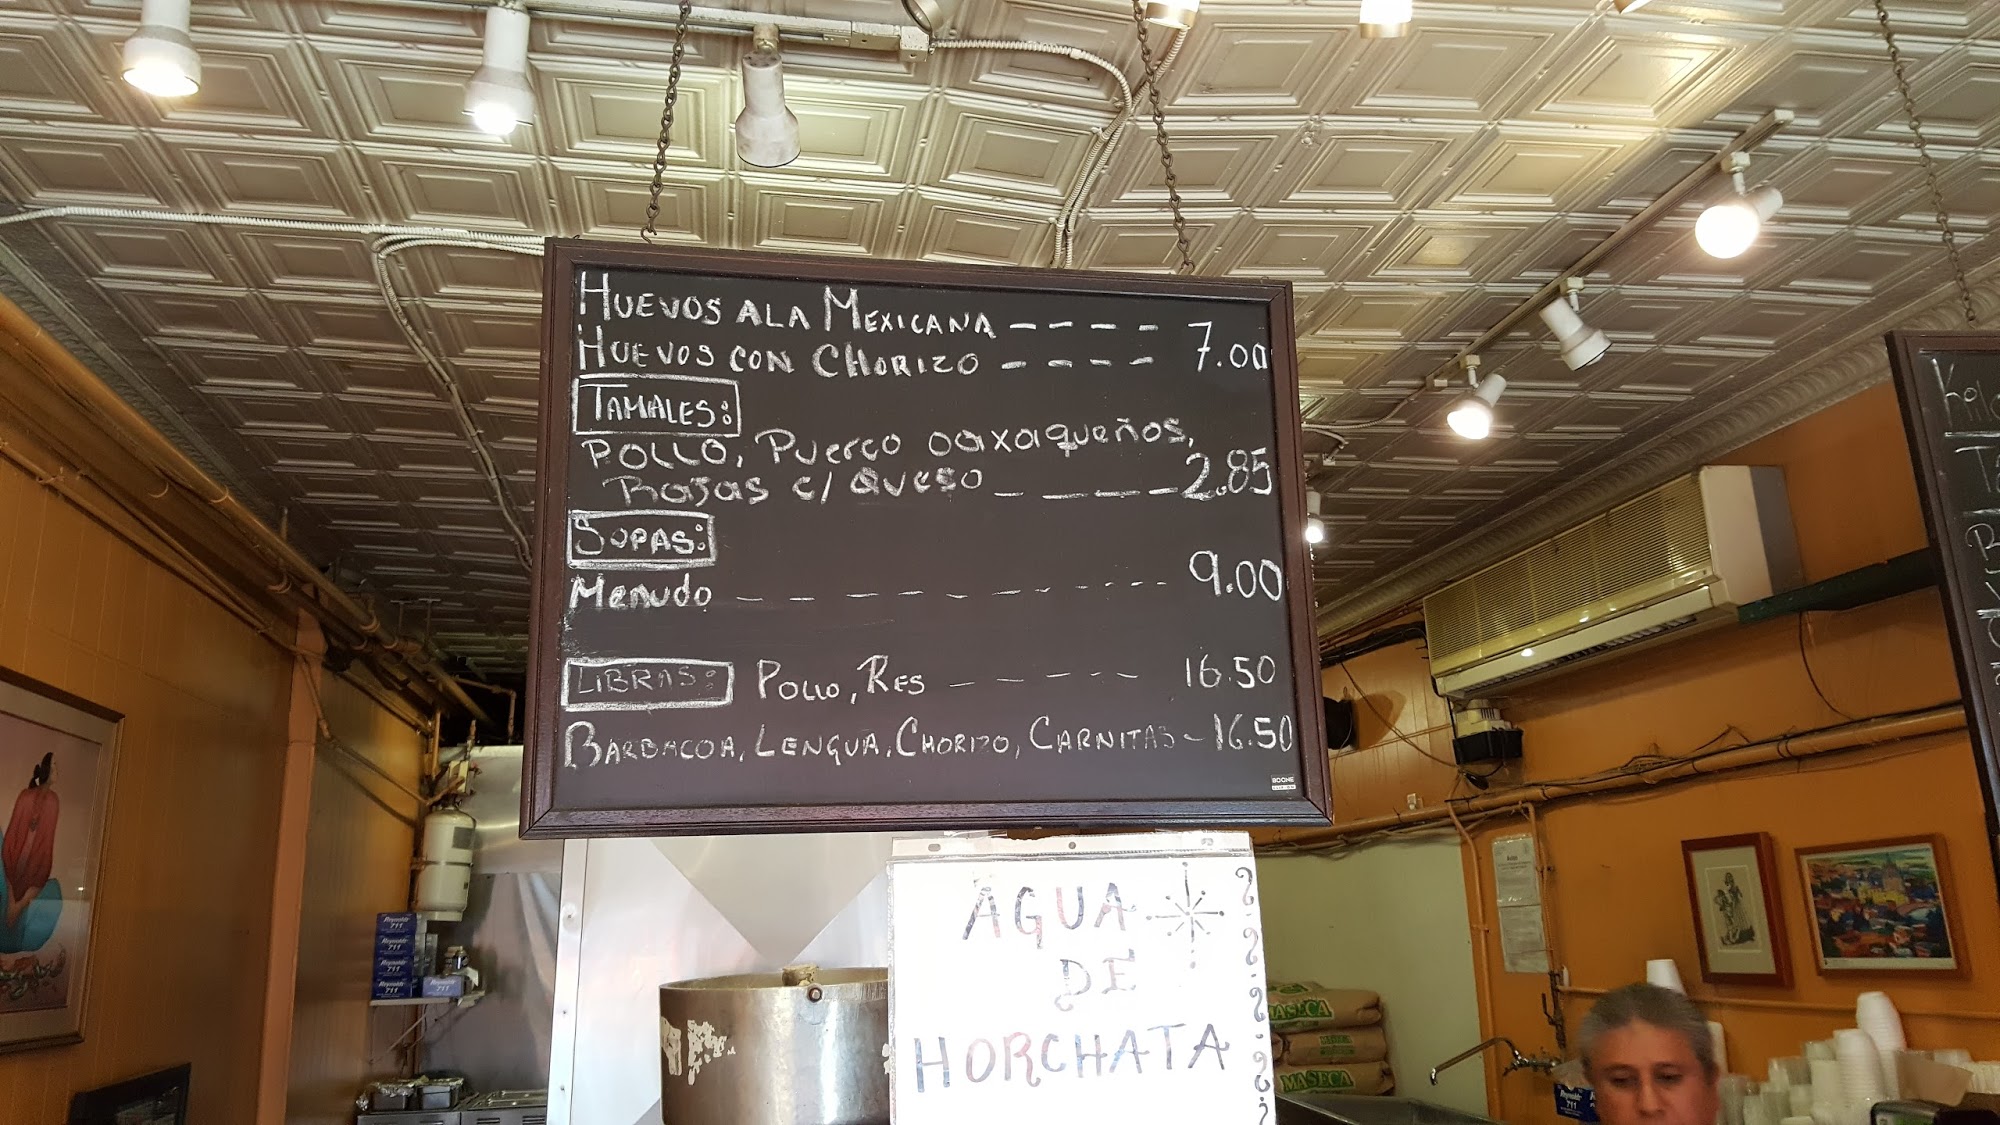 HUEVOS ALA MEXICANA ----
HUEVOS CON CHORIZO ---- 7.00
TAMALES:
POLLO, Puerco oaxaqueños,
Rajas c/ Queso ---- 2.85
SOPAS:
Menudo ---------- 9.00
LIBRAS: POLLO, RES ----- 16.50
BARBACOA, LENGUA, CHORIZO, CARNITAS - 16.50
BOONE
AGUA
DE
HORCHATA
Reynolds
711
Reynolds
711
Reynolds
711
Reynolds
711
MASECA
MASECA
MASECA
Reynolds
711